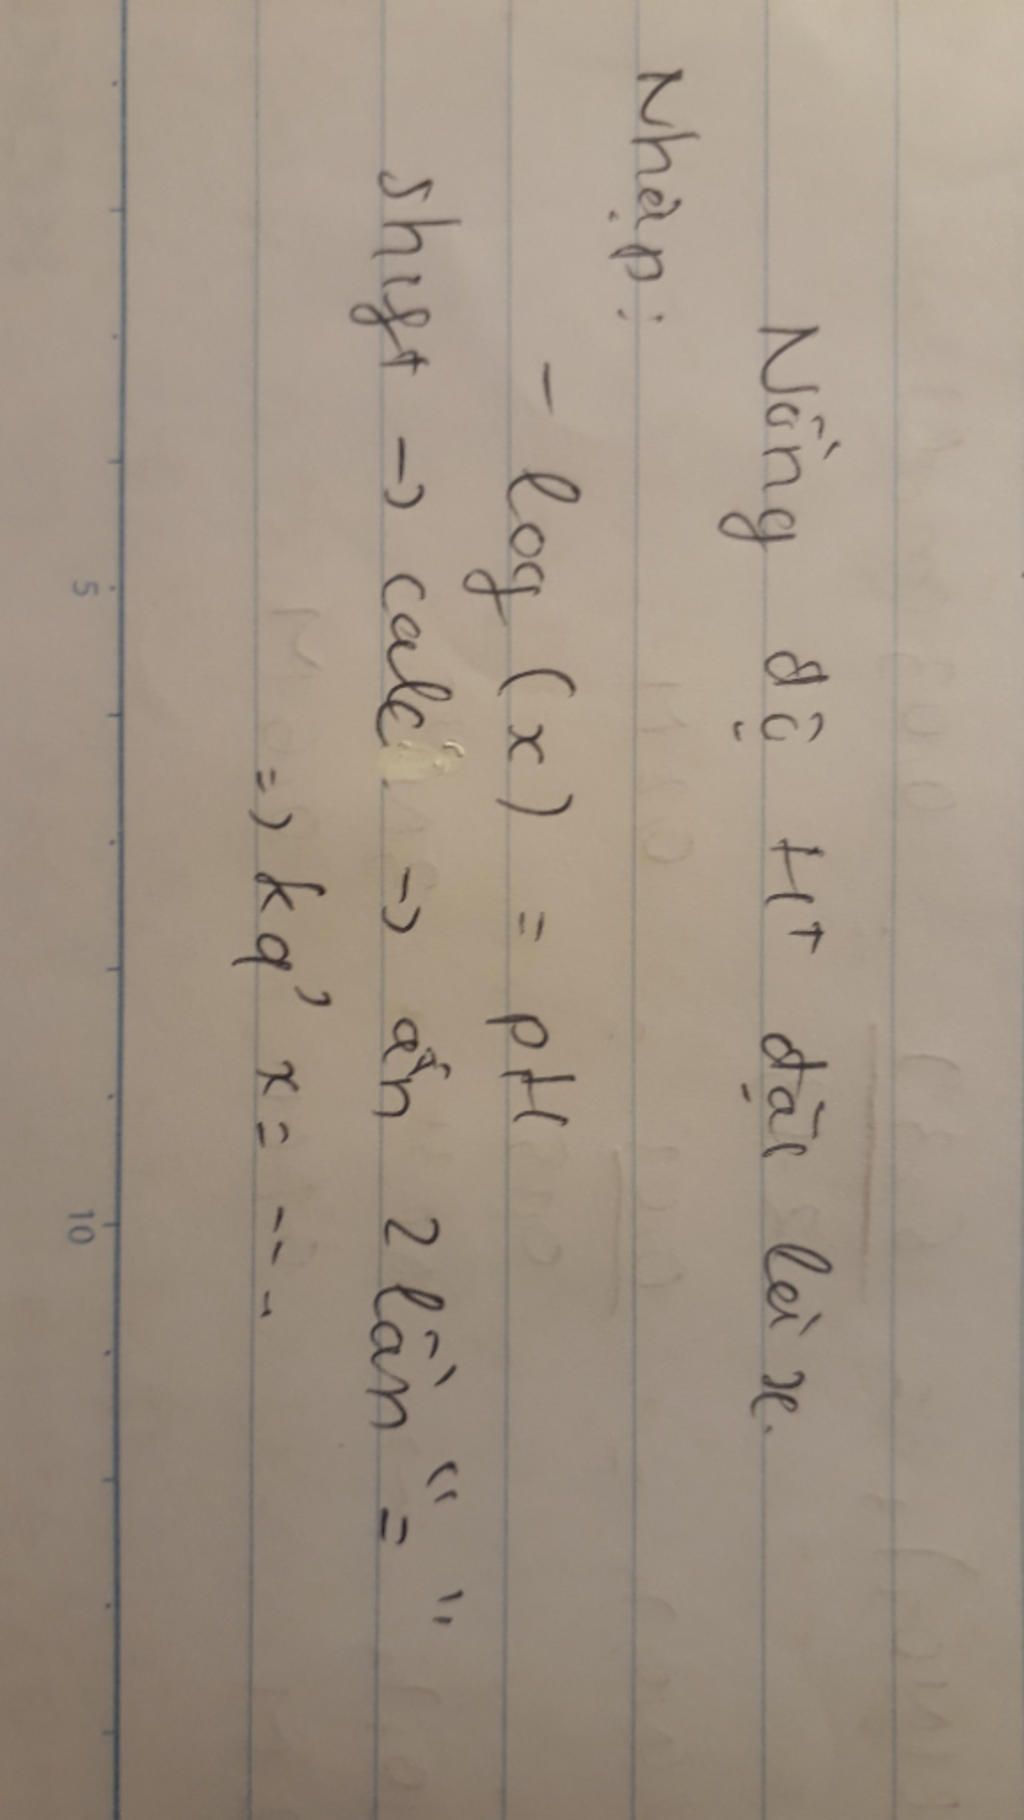 Nồng độ H⁺ đặt là x.
Nhập:
- log (x) = pH
Shift → calc → ấn 2 lần " = "
=) kq' x = ---
5
10